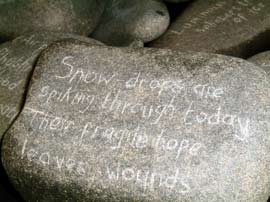 Snow drops are
spiking through today
Their fragile hope
leaves wounds